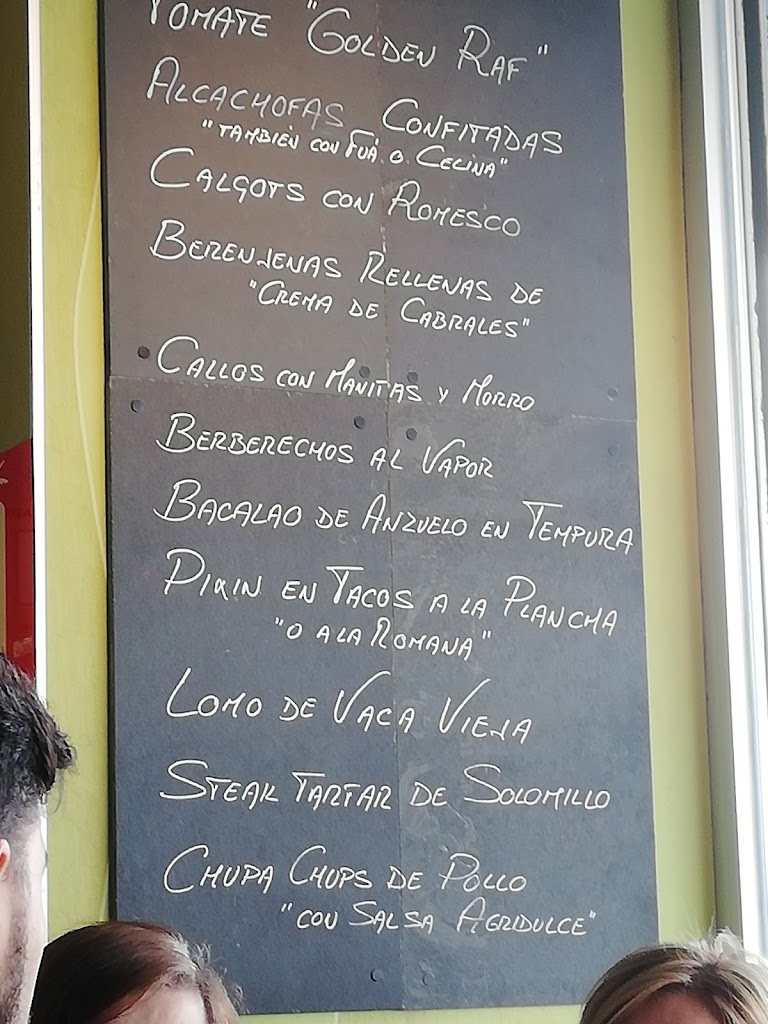 TOMATE "GOLDEN RAF"
ALCACHOFAS CONFITADAS
"TAMBIÉN CON FUÁ O CECINA"
CALÇOTS CON ROMESCO
BERENJENAS RELLENAS DE
"CREMA DE CABRALES"
CALLOS CON MANITAS Y MORRO
BERBERECHOS AL VAPOR
BACALAO DE ANZUELO EN TEMPURA
PIXIN EN TACOS A LA PLANCHA
"O A LA ROMANA"
LOMO DE VACA VIEJA
STEAK TARTAR DE SOLOMILLO
CHUPA CHUPS DE POLLO
"CON SALSA AGRIDULCE"